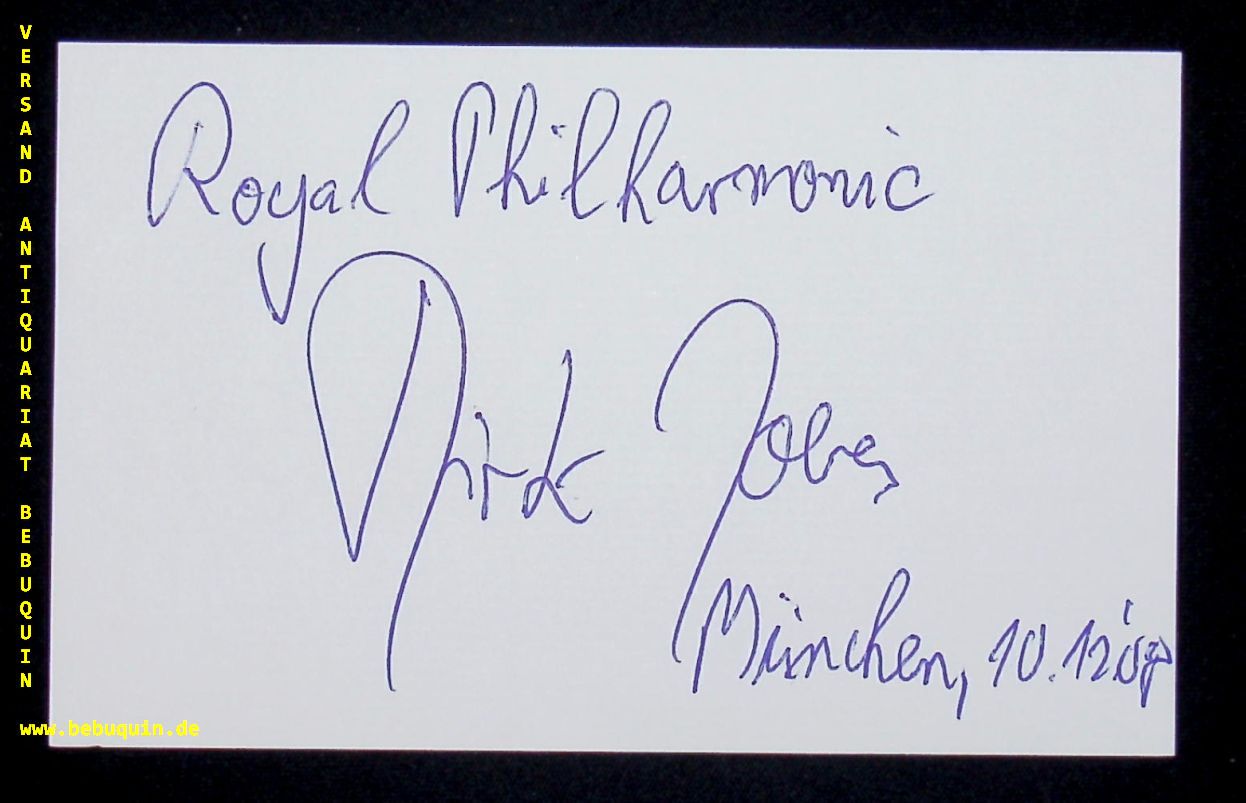 VERSAND ANTIQUARIAT BEBUQUIN
Royal Philharmonic
Dirk Joeres
München, 10.12.08
www.bebuquin.de